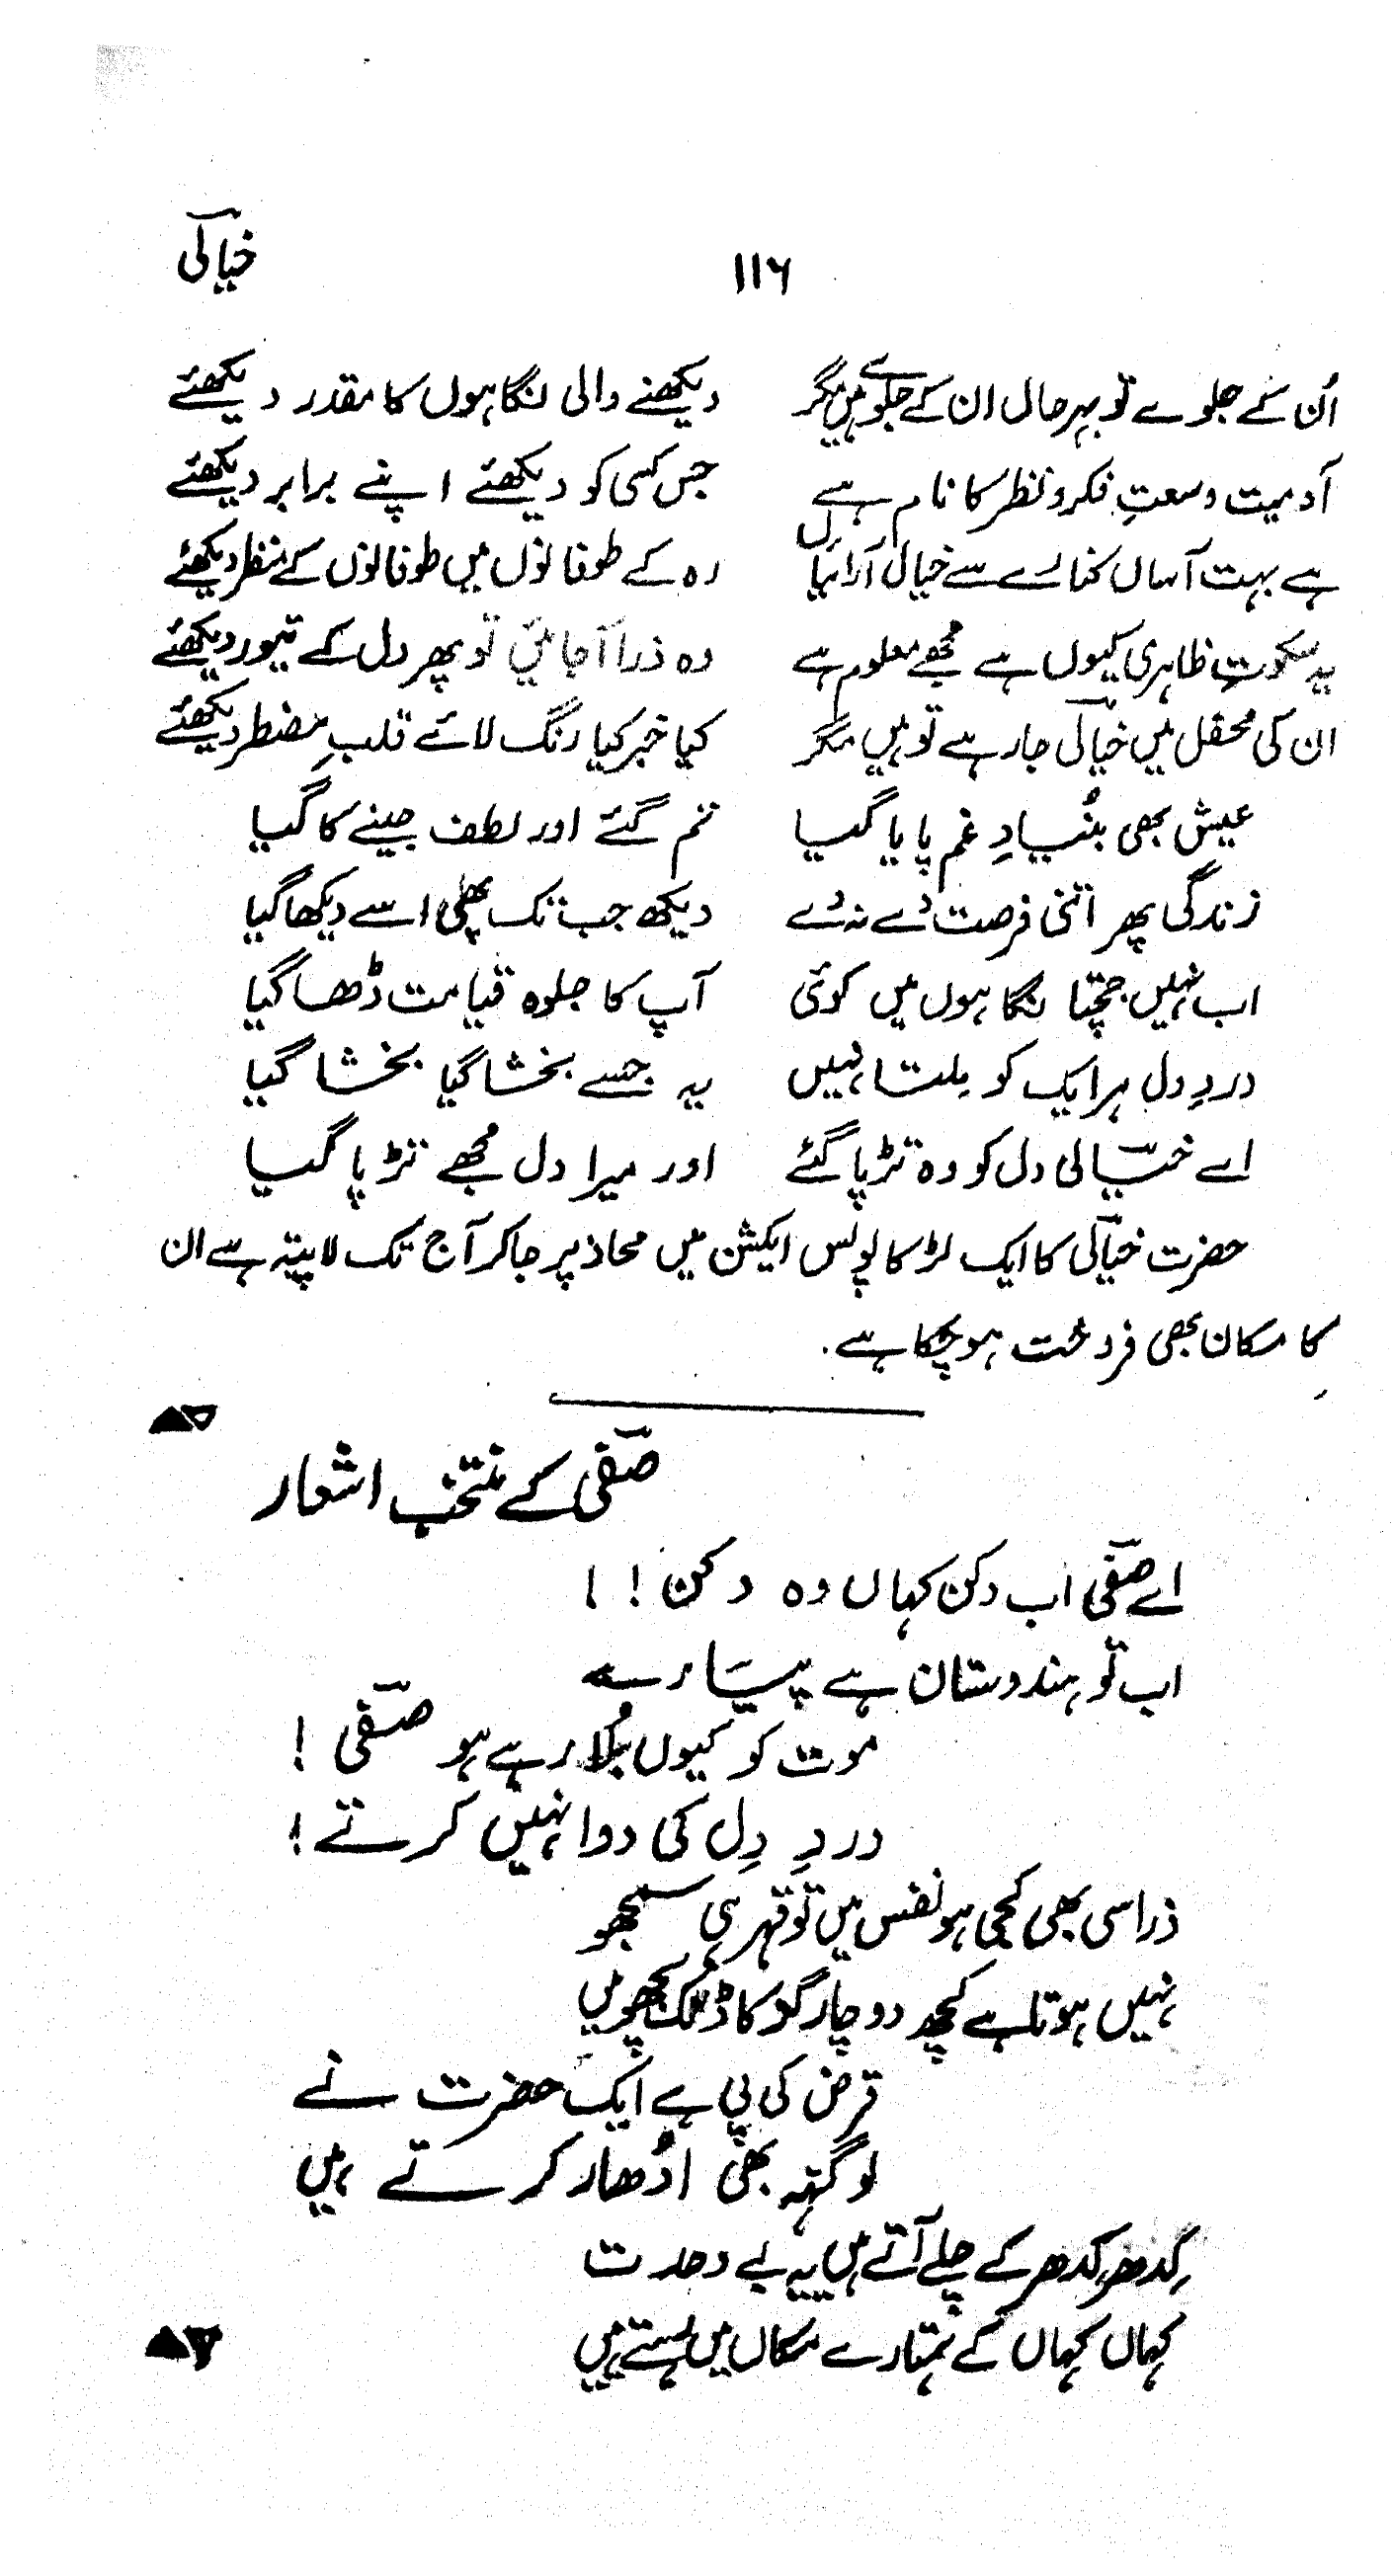 خیالی
۱۱۶
اُن کے جلوے تو بہرحال ان کے جلوے ہیں مگر دیکھنے والی نگاہوں کا مقدر دیکھئے
آدمیت وسعتِ فکر و نظر کا نام ہے جس کسی کو دیکھئے اپنے برابر دیکھئے
ہے بہت آساں کنارے سے خیال آرائیاں رہ کے طوفانوں میں طوفانوں کے منظر دیکھئے
یہ سکوتِ ظاہری کیوں ہے مجھے معلوم ہے وہ ذرا آجائیں تو پھر دل کے تیور دیکھئے
ان کی محفل میں خیالی جارہے تو ہیں مگر کیا خبر کیا رنگ لائے قلبِ مضطر دیکھئے
عیش بھی بُنیادِ غم پایا گیا تم گئے اور لطف جینے کا گیا
زندگی پھر اتنی فرصت دے نہ دے دیکھ جب تک بھی اسے دیکھا گیا
اب نہیں جچتا نگاہوں میں کوئی آپ کا جلوہ قیامت ڈھا گیا
دردِ دل ہر ایک کو مِلتا نہیں یہ جسے بخشا گیا بخشا گیا
اے خیالی دل کو وہ تڑپا گئے اور میرا دل مجھے تڑپا گیا
حضرت خیالی کا ایک لڑکا پولس ایکشن میں محاذ پر جاکر آج تک لاپتہ ہے ان
کا مکان بھی فروخت ہوچکا ہے۔
صفی کے منتخب اشعار
اے صفی اب دکن کہاں وہ دکن !!
اب تو ہندوستان ہے پیارے
موت کو کیوں بُلا رہے ہو صفی !
دردِ دِل کی دوا نہیں کرتے !
ذراسی بھی کجی ہو نفس میں تو قہر ہی سمجھو
نہیں ہوتا ہے کچھ دو چار گز کا ڈنک بچھو میں
قرض کی پی ہے ایک حضرت نے
لو گنہ بھی اُدھار کرتے ہیں
کِدھر کِدھر کے چلے آتے ہیں یہ بے وحدت
کہاں کہاں کے تمہارے مکاں میں بستے ہیں